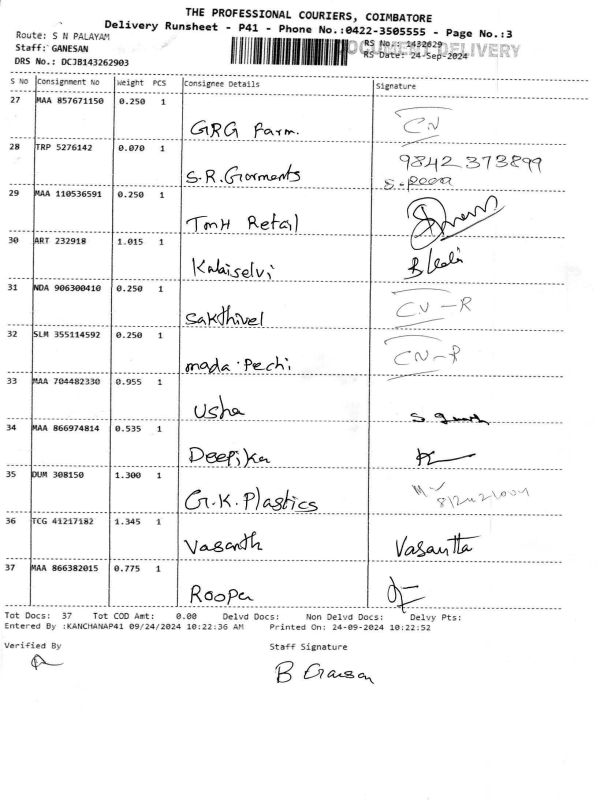 THE PROFESSIONAL COURIERS, COIMBATORE
Delivery Runsheet - P41 - Phone No.:0422-3505555 - Page No.:3
Route: S N PALAYAM
DOCUMENT DELIVERY
RS No.: 1432629
Staff: GANESAN
RS Date: 24-Sep-2024
DRS No.: DCJB143262903
S NO Consignment No Weight PCS Consignee Details Signature
27 MAA 857671150 0.250 1
GRG Farm. CN
28 TRP 5276142 0.070 1 9842 373899
S.R. Garments
29 MAA 110536591 0.250 1
TMH Retail
30 ART 232918 1.015 1
Kalaiselvi
31 NDA 906300410 0.250 1
Sakthivel CN-R
32 SLM 355114592 0.250 1
mada.Pechi CN-R
33 MAA 704482330 0.955 1
Usha
34 MAA 866974814 0.535 1
Deepika
35 DUM 308150 1.300 1
G.K. Plastics
36 TCG 41217182 1.345 1
Vasanth Vasantta
37 MAA 866382015 0.775 1
Roopa
Tot Docs: 37 Tot COD Amt: 0.00 Delvd Docs: Non Delvd Docs: Delvy Pts:
Entered By :KANCHANAP41 09/24/2024 10:22:36 AM Printed On: 24-09-2024 10:22:52
Verified By Staff Signature